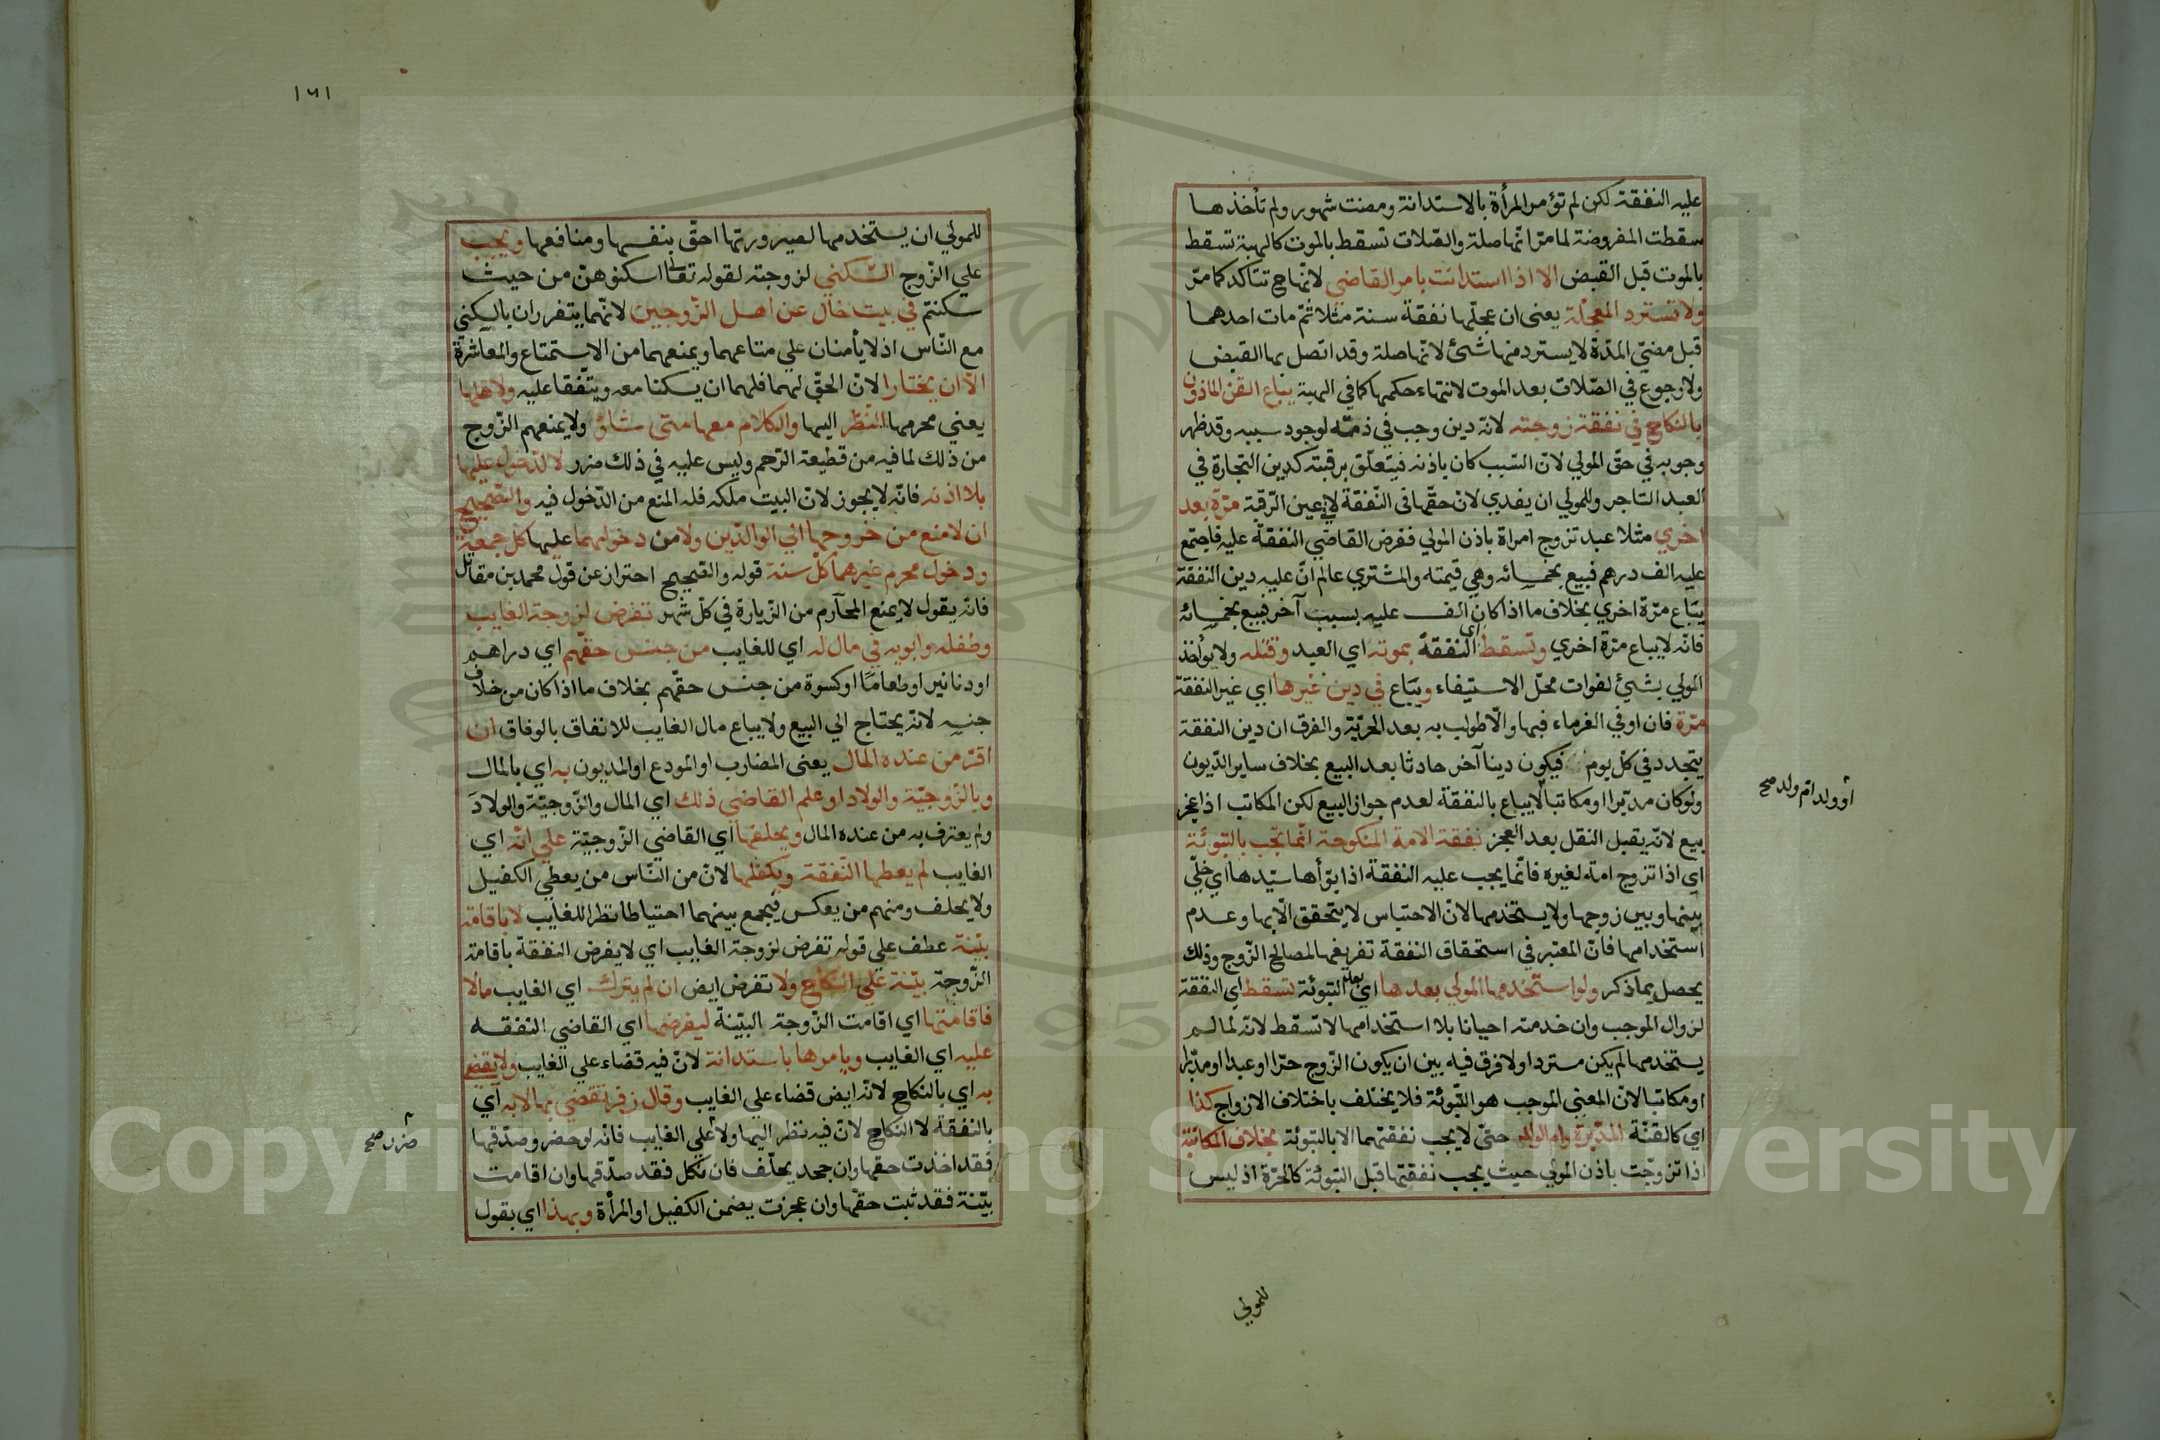 عليه النفقة لكن لم تؤمر المرأة بالاستدانة ومضت شهور ولم تأخذها
سقطت المفروضة لما مرّ انّها صلة والصّلات تسقط بالموت كالهبة تسقط
بالموت قبل القبض الا اذا استدانت بامر القاضي لانّها ح تتأكد كما مرّ
ولا تسترد المعجّلة يعنى ان عجّلها نفقة سنة مثلا ثمّ مات احدهما
قبل مضيّ المدّة لا يسترد منها شئ لانّها صلة وقد اتصل بها القبض
ولا رجوع في الصّلات بعد الموت لانتهاء حكمها كما في الهبة يباع القنّ الماذون
بالنكاح في نفقة زوجته لانّه دين وجب في ذمّته لوجود سببه وقد ظهر
وجوبه في حقّ المولي لانّ السّبب كان باذنه فيتعلّق برقبته كدين التجارة في
العبد التاجر وللمولي ان يفدي لانّ حقّها في النّفقة لا في عين الرّقبة مرّة بعد
اخري مثلا عبد تزوج امراة باذن المولي ففرض القاضي النفقة عليه فاجتمع
عليه الف درهم فبيع بخمسائه وهي قيمته والمشتري عالم انّ عليه دين النفقة
يباع مرّة اخري بخلاف ما اذا كان الف عليه بسبب آخر فبيع بخمسائه
فانّه لا يباع مرّة اخري وتسقط اي النفقة بموته اي العبد وقتله ولا يؤاخذ
المولي بشئ لفوات محلّ الاستيفاء ويباع في دين غيرها اي غير النفقة
مرّة فان اوفي الغرماء فبها والّا طولب به بعد الحريّة والفرق ان دين النفقة
يتجدد في كلّ يوم فيكون دينا آخر حادثا بعد البيع بخلاف ساير الدّيون
ولو كان مدبّرا او مكاتبا لا يباع بالنفقة لعدم جواز البيع لكن المكاتب اذا عجز
او ولد امّ ولد صح
بيع لانّه يقبل النقل بعد العجز نفقة الامة المنكوحة انّما تجب بالتبوئة
اي اذا تزوج امة لغيره فانّما يجب عليه النفقة اذا بوّأها سيّدها اي خلّي
بينها وبين زوجها ولا يستخدمها لانّ الاحتباس لا يتحقق الّا بها وعدم
استخدامها فانّ المعتبر في استحقاق النفقة تفريغها لمصالح الزّوج وذلك
يحصل بما ذكر ولو استخدمها المولي بعدها اي بعد التبوئة تسقط اي النفقة
لزوال الموجب وان خدمته احيانا بلا استخدامها لا تسقط لانّه لما لم
يستخدمها لم يكن مستردا ولا فرق فيه بين ان يكون الزّوج حرّا او عبدا او مدبّرا
او مكاتبا لانّ المعني الموجب هو التبوئة فلا يختلف باختلاف الازواج كذا
اي كالقنّة المدبّرة وام الولد حتّي لا يجب نفقتهما الا بالتبوئة بخلاف المكاتبة
اذا تزوّجت باذن المولي حيث يجب نفقتها قبل التبوئة كالحرّة اذ ليس
للمولي
١٦١
للمولي ان يستخدمها لصيرورتها احقّ بنفسها ومنافعها ويجب
علي الزّوج السّكني لزوجته لقوله تعا اسكنوهنّ من حيث
سكنتم في بيت خال عن اهل الزّوجين لانّهما يتضرران بالسكني
مع النّاس اذ لا يأمنان علي متاعهما ويمنعهما من الاستمتاع والمعاشرة
الّا ان يختارا لانّ الحقّ لهما فلهما ان يسكنا معه ويتّفقا عليه ولاهلها
يعني محرمها النّظر اليها والكلام معها متى شاؤ ولا يمنعهم الزّوج
من ذلك لما فيه من قطيعة الرّحم وليس عليه في ذلك ضرر لا الدّخول عليها
بلا اذنه فانّه لا يجوز لانّ البيت ملكه فله المنع من الدّخول فيه والصّحيح
ان لا منع من خروجها الي الوالدّين ولا من دخولهما عليها كل جمعة
ودخول محرم غيرهما كلّ سنة قوله والصّحيح احتراز عن قول محمد بن مقاتل
فانّه يقول لا يمنع المحارم من الزّيارة في كلّ شهر تفرض لزوجة الغايب
وطفله وابويه في مال له اي للغايب من جنس حقّهم اي دراهم
او دنانير او طعامًا او كسوة من جنس حقّهم بخلاف ما اذا كان من خلاف
جنسه لانّه يحتاج الي البيع ولا يباع مال الغايب للانفاق بالوفاق ان
اقرّ من عنده المال يعنى المضارب او المودع او المديون به اي بالمال
وبالزّوجيّة والولاد او علم القاضي ذلك اي المال والزّوجيّة والولاد
ولم يعترف به من عنده المال ويحلفها اي القاضي الزّوجيّة علي انّه اي
الغايب لم يعطها النّفقة ويكفلها لانّ من النّاس من يعطي الكفيل
ولا يحلف ومنهم من يعكس فيجمع بينهما احتياطا نظرا للغايب لا باقامة
بيّنة عطف علي قوله تفرض لزوجة الغايب اي لا يفرض النفقة باقامة
الزّوجة بيّنة علي النكاح ولا تفرض ايض ان لم يترك اي الغايب مالا
فاقامتها اي اقامت الزّوجة البيّنة ليفرضها اي القاضي النفقه
عليه اي الغايب ويامرها باستدانة لانّ فيه قضاء علي الغايب ولا يقضى
به اي بالنكاح لانّه ايض قضاء علي الغايب وقال زفر يقضي بها لا به اي
بالنفقة لا النكاح لانّ فيه نظر اليها ولا علي الغايب فانّه لو حضر وصدّقها
ضرر صح
فقد اخذت حقها وان جحد يحلّف فان نكل فقد صدّقها وان اقامت
بيّنة فقد ثبت حقّها وان عجزت يضمن الكفيل او المرأة وبهذا اي بقول
Copyright © King Saud University